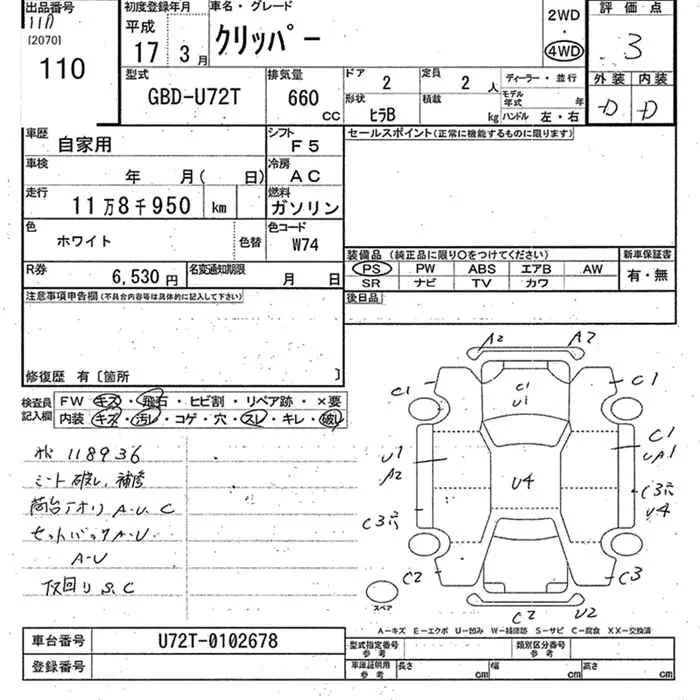 出品番号
110
[2070]
110
初度登録年月
平成
17 3月
車名・グレード
クリッパー
2WD
4WD
評価点
3
外装 内装
D D
型式
GBD-U72T
排気量
660
CC
ドア
2
定員
2 人
形状
ヒラB
積載
kg
ディーラー・並行
モデル年式 年
ハンドル 左・右
車歴
自家用
シフト
F5
車検
年 月( 日)
冷房
AC
走行
11万8千950 km
燃料
ガソリン
色
ホワイト
色替
色コード
W74
R券
6,530 円
名変通知期限
月 日
セールスポイント(正常に機能するものに限ります)
装備品(純正品に限り○をつけてください)
PS PW ABS エアB AW
SR ナビ TV カワ
新車保証書
有・無
後日品
注意事項申告欄(不具合内容等は具体的に記入して下さい)
修復歴 有〔箇所 〕
検査員記入欄
FW キズ・飛石・ヒビ割・リペア跡・×要
内装 キズ・汚レ・コゲ・穴・スレ・キレ・破レ
118936
シート破レ、補修
荷台アオリ A.U.C
セットバック A-U
A-U
下回り S.C
A2 A2
C1 C1
C1
U1
U1
A2
C1
UA1
U4
C3穴
C3穴
U4
C2 C3
C2 U2
スペア
A-キズ E-エクボ U-凹み W-補修跡 S-サビ C-腐食 XX-交換済
車台番号
U72T-0102678
登録番号
型式指定番号
参考
類別区分番号
参考
車庫証明用
参考
長さ cm
幅 cm
高さ cm